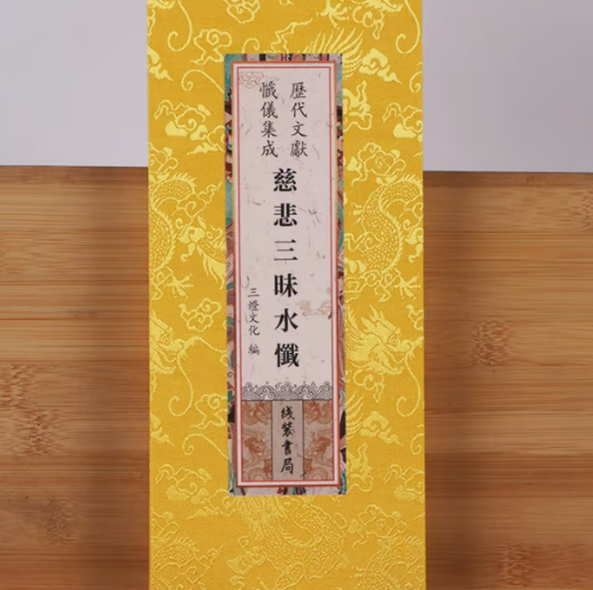 歷代文獻
懺儀集成
慈悲三昧水懺
三燈文化 編
线装書局